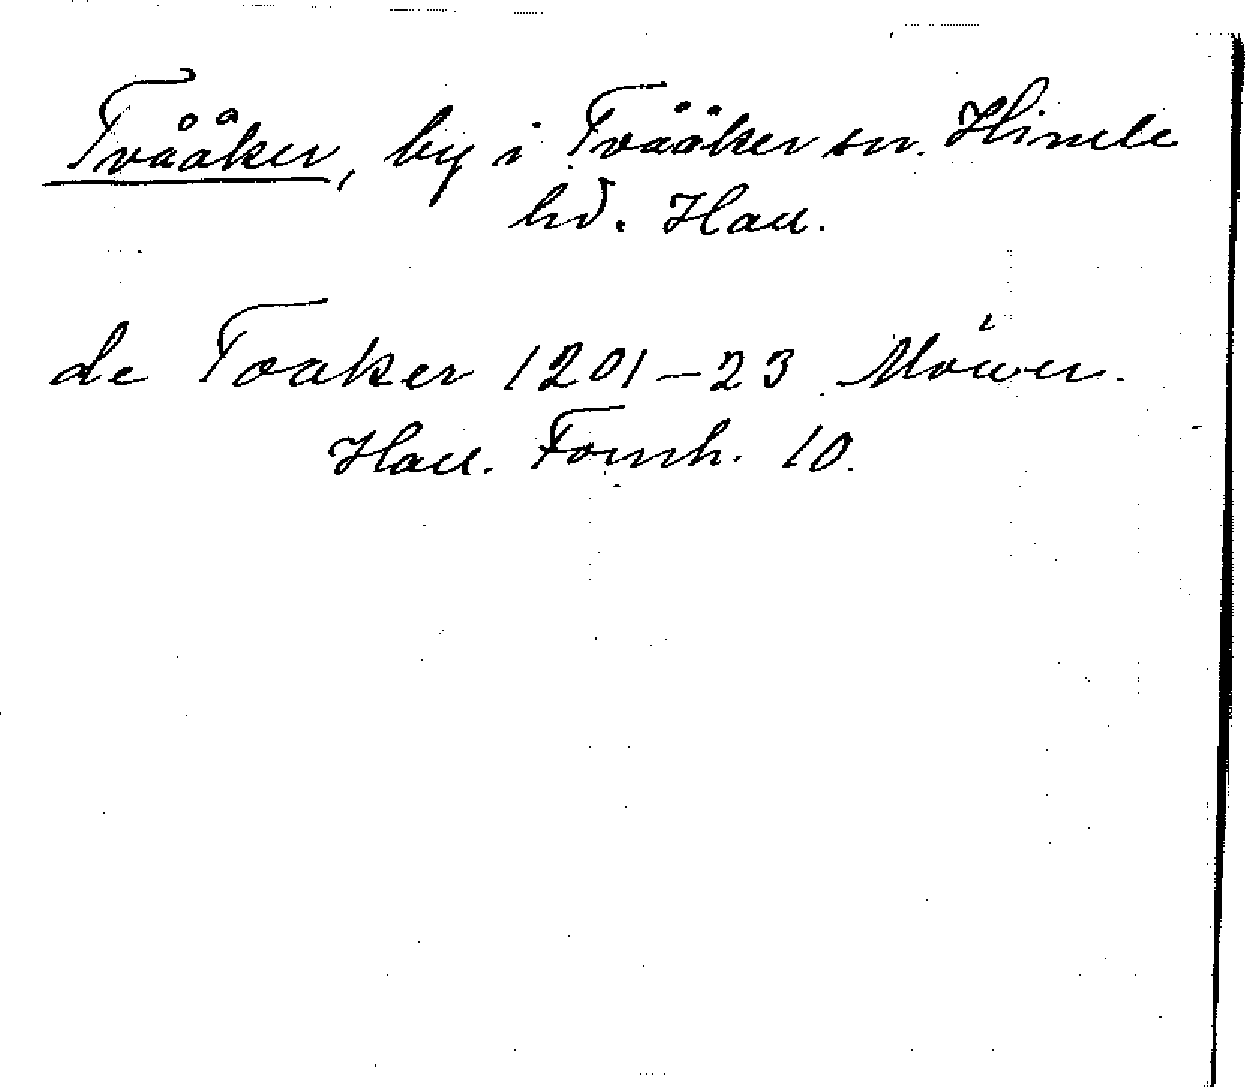 Tvååker, by i Tvååker sn. Himle
hd. Hall.
de Toaker 1201–23
Hall. Fornh. 10.